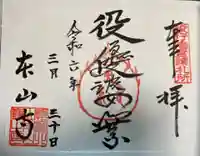 奉拝
役優婆塞
令和六年
三月
二十日
東山寺